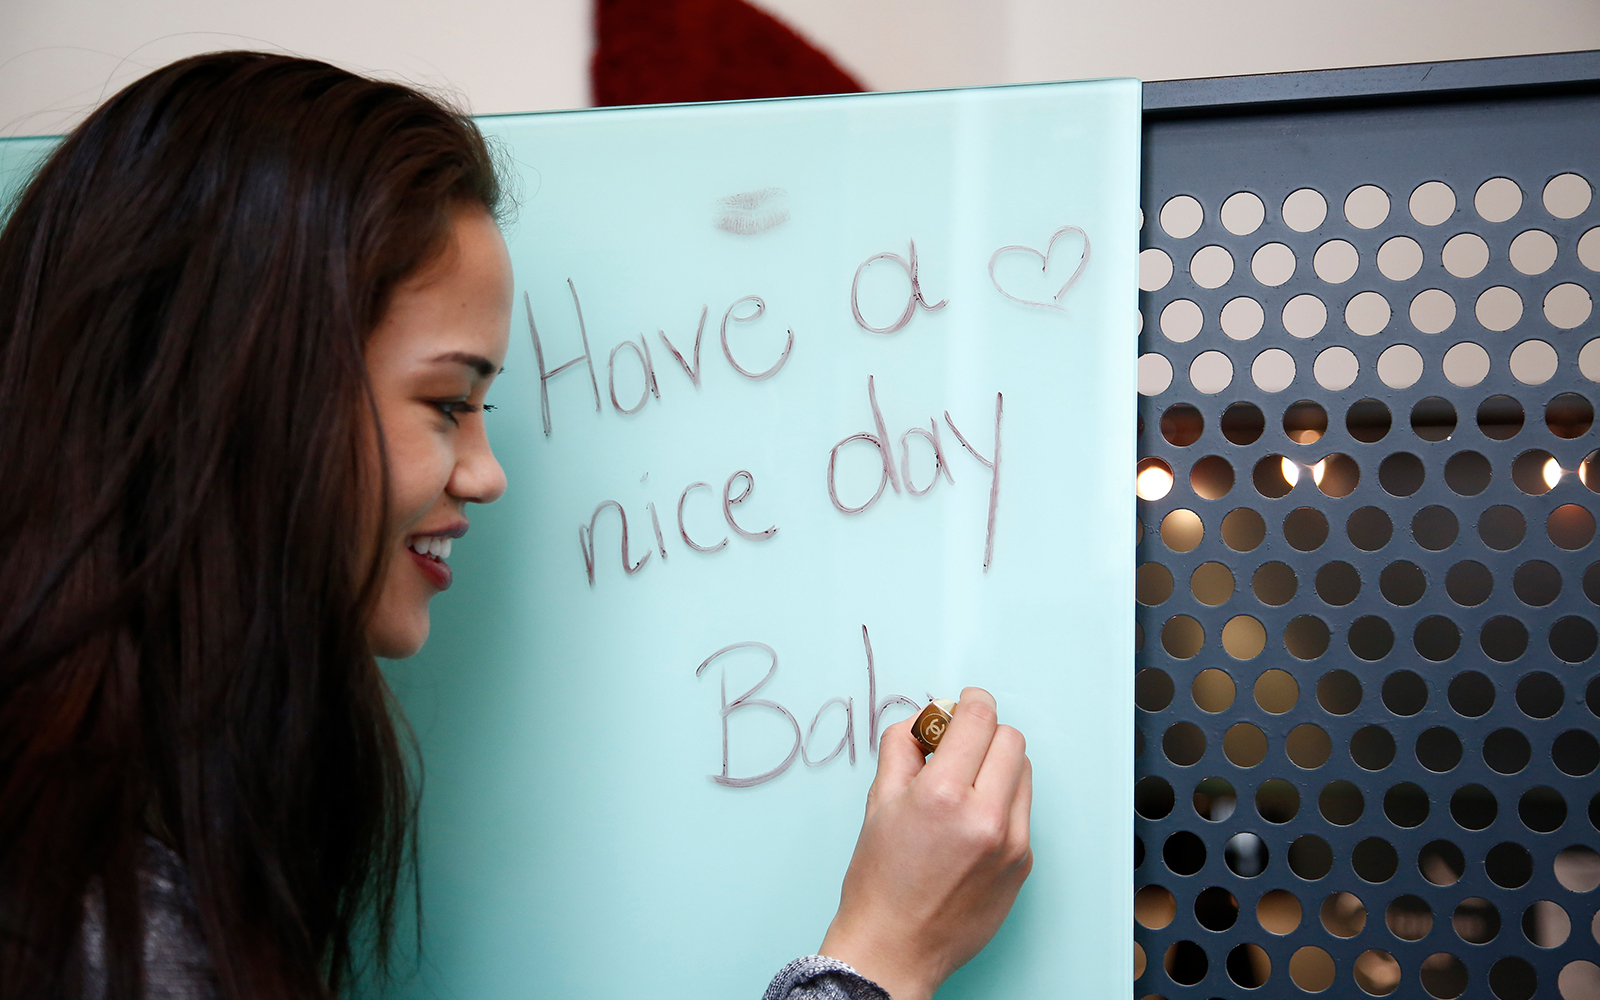 Have a
nice day
Bab